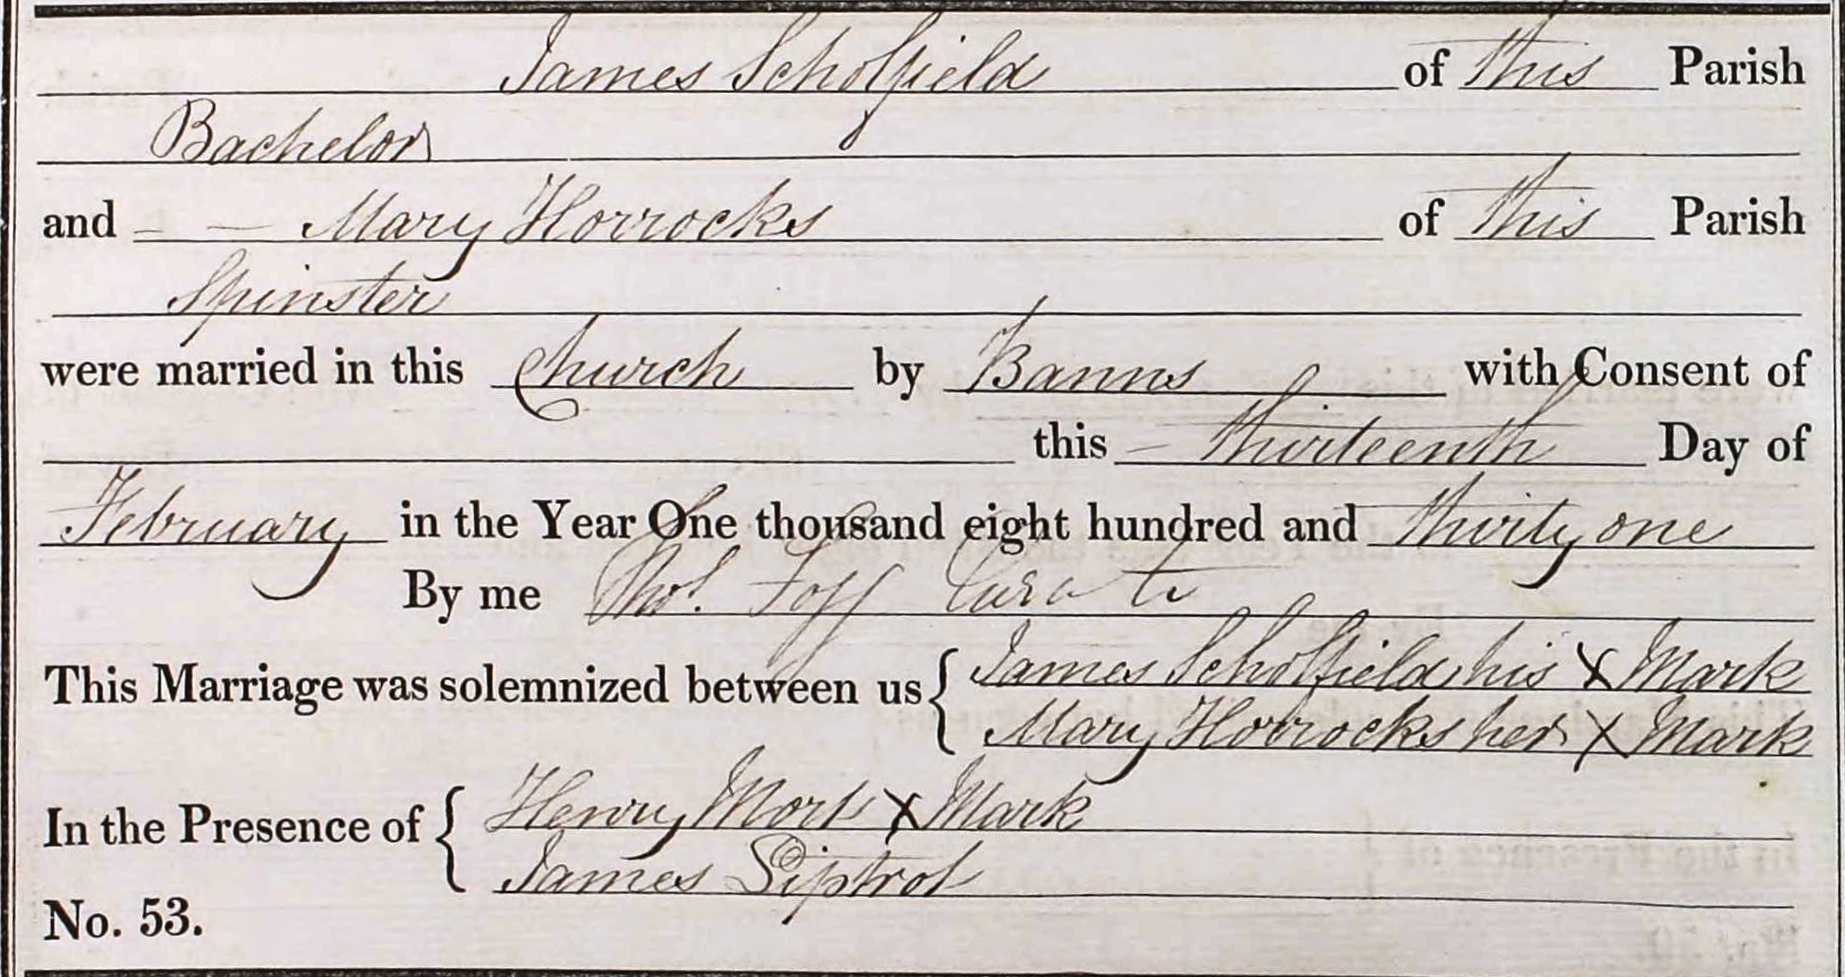 James Scholfield of this Parish
Bachelor
and Mary Horrocks of this Parish
Spinster
were married in this Church by Banns with Consent of
this thirteenth Day of
February in the Year One thousand eight hundred and thirty one
By me Thos. Foff Curate
This Marriage was solemnized between us { James Scholfield his X Mark
Mary Horrocks her X Mark
In the Presence of { Henry Mort X Mark
James Siptrot
No. 53.